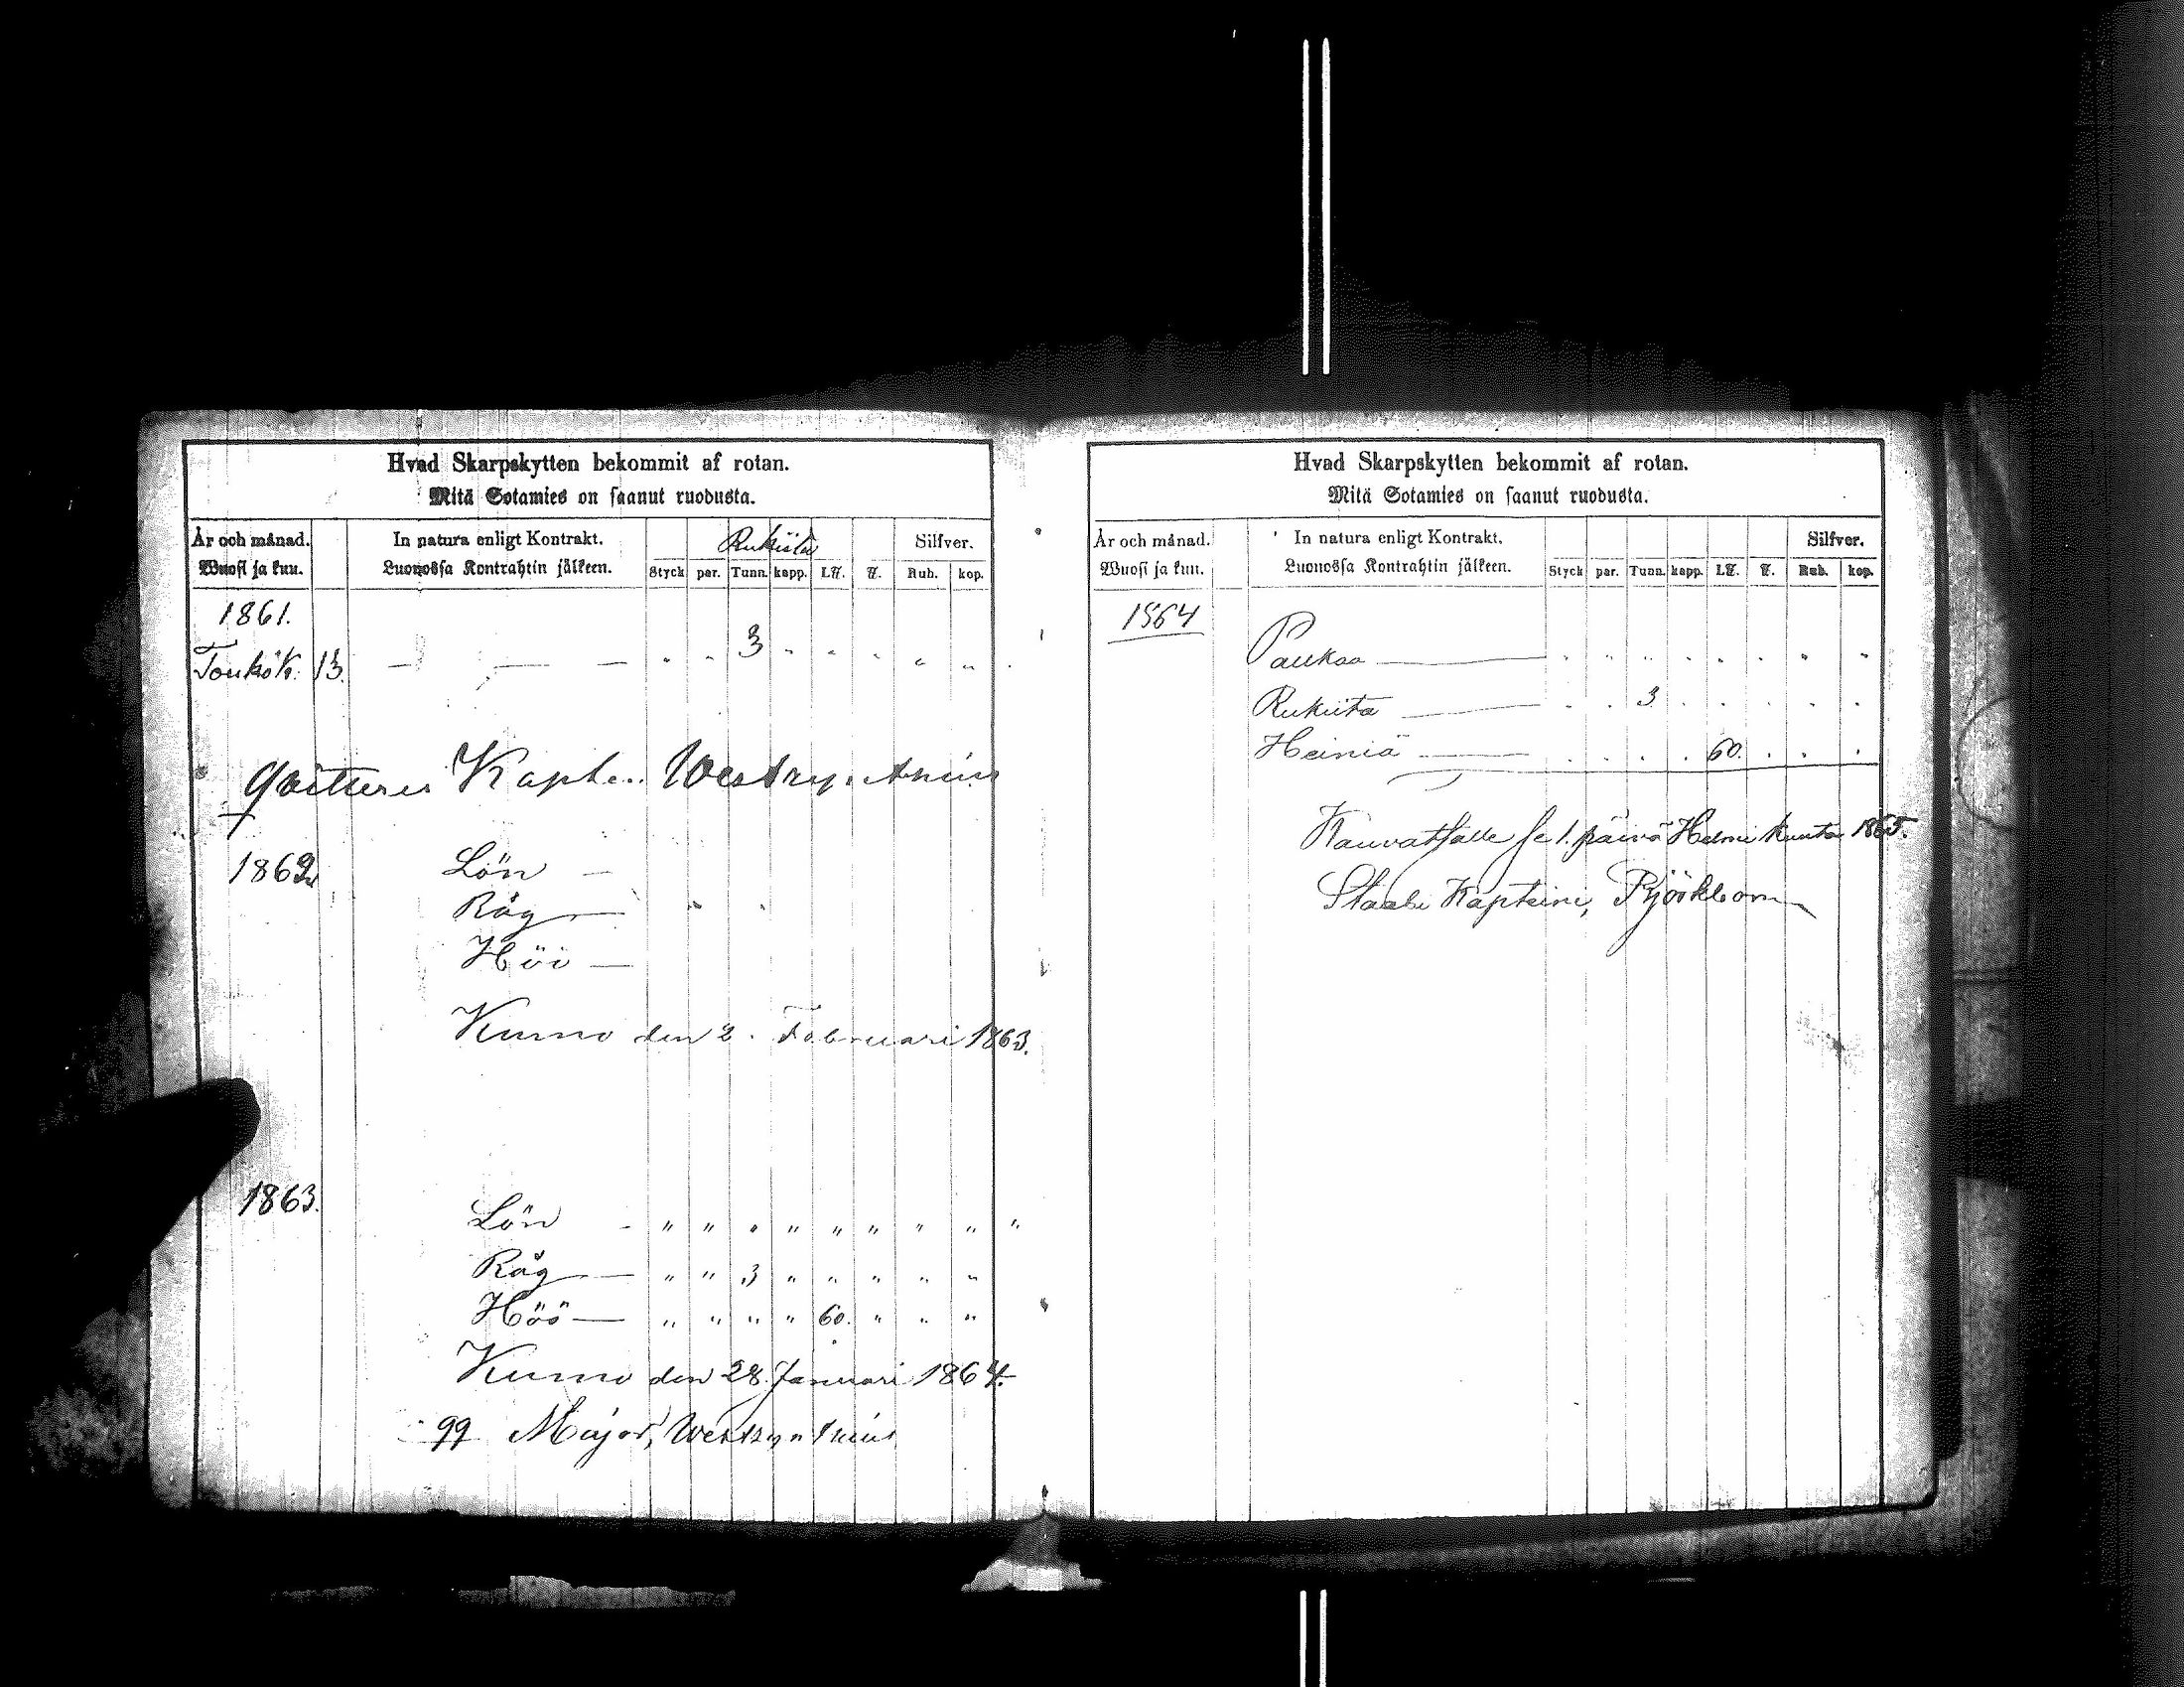 Hvad Skarpskytten bekommit af rotan.
Mitä Sotamies on saanut ruodusta.
År och månad. In natura enligt Kontrakt. Rukiita Silfver.
Wuosi ja kuu. Luonossa Kontrahtin jälkeen. Styck par. Tunn. kapp. L℔. ℔. Rub. kop.
1861.
Toukok. 13. — — — " " 3 " " " " "
Qvitterer Kapten Westzynthius
1862 Lön —
Råg — " "
Höö —
Kumo den 2. Februari 1863.
1863. Lön - " " " " " " " " "
Råg — " " 3 " " " " "
Höö — " " " " 60. " " "
Kumo den 28. Januari 1864.
Major, Westzynthius
Hvad Skarpskytten bekommit af rotan.
Mitä Sotamies on saanut ruodusta.
År och månad. In natura enligt Kontrakt. Silfver.
Wuosi ja kuu. Luonossa Kontrahtin jälkeen. Styck par. Tunn. kapp. L℔. ℔. Rub. kop.
1864
Palkaa — " " " " " " " "
Rukiita — . . 3 . . . . .
Heiniä — . . . . 60. . . .
Kauvatsalle se 1. päivä Helmi kuuta 1865.
Staabi Kapteini, Björkbom